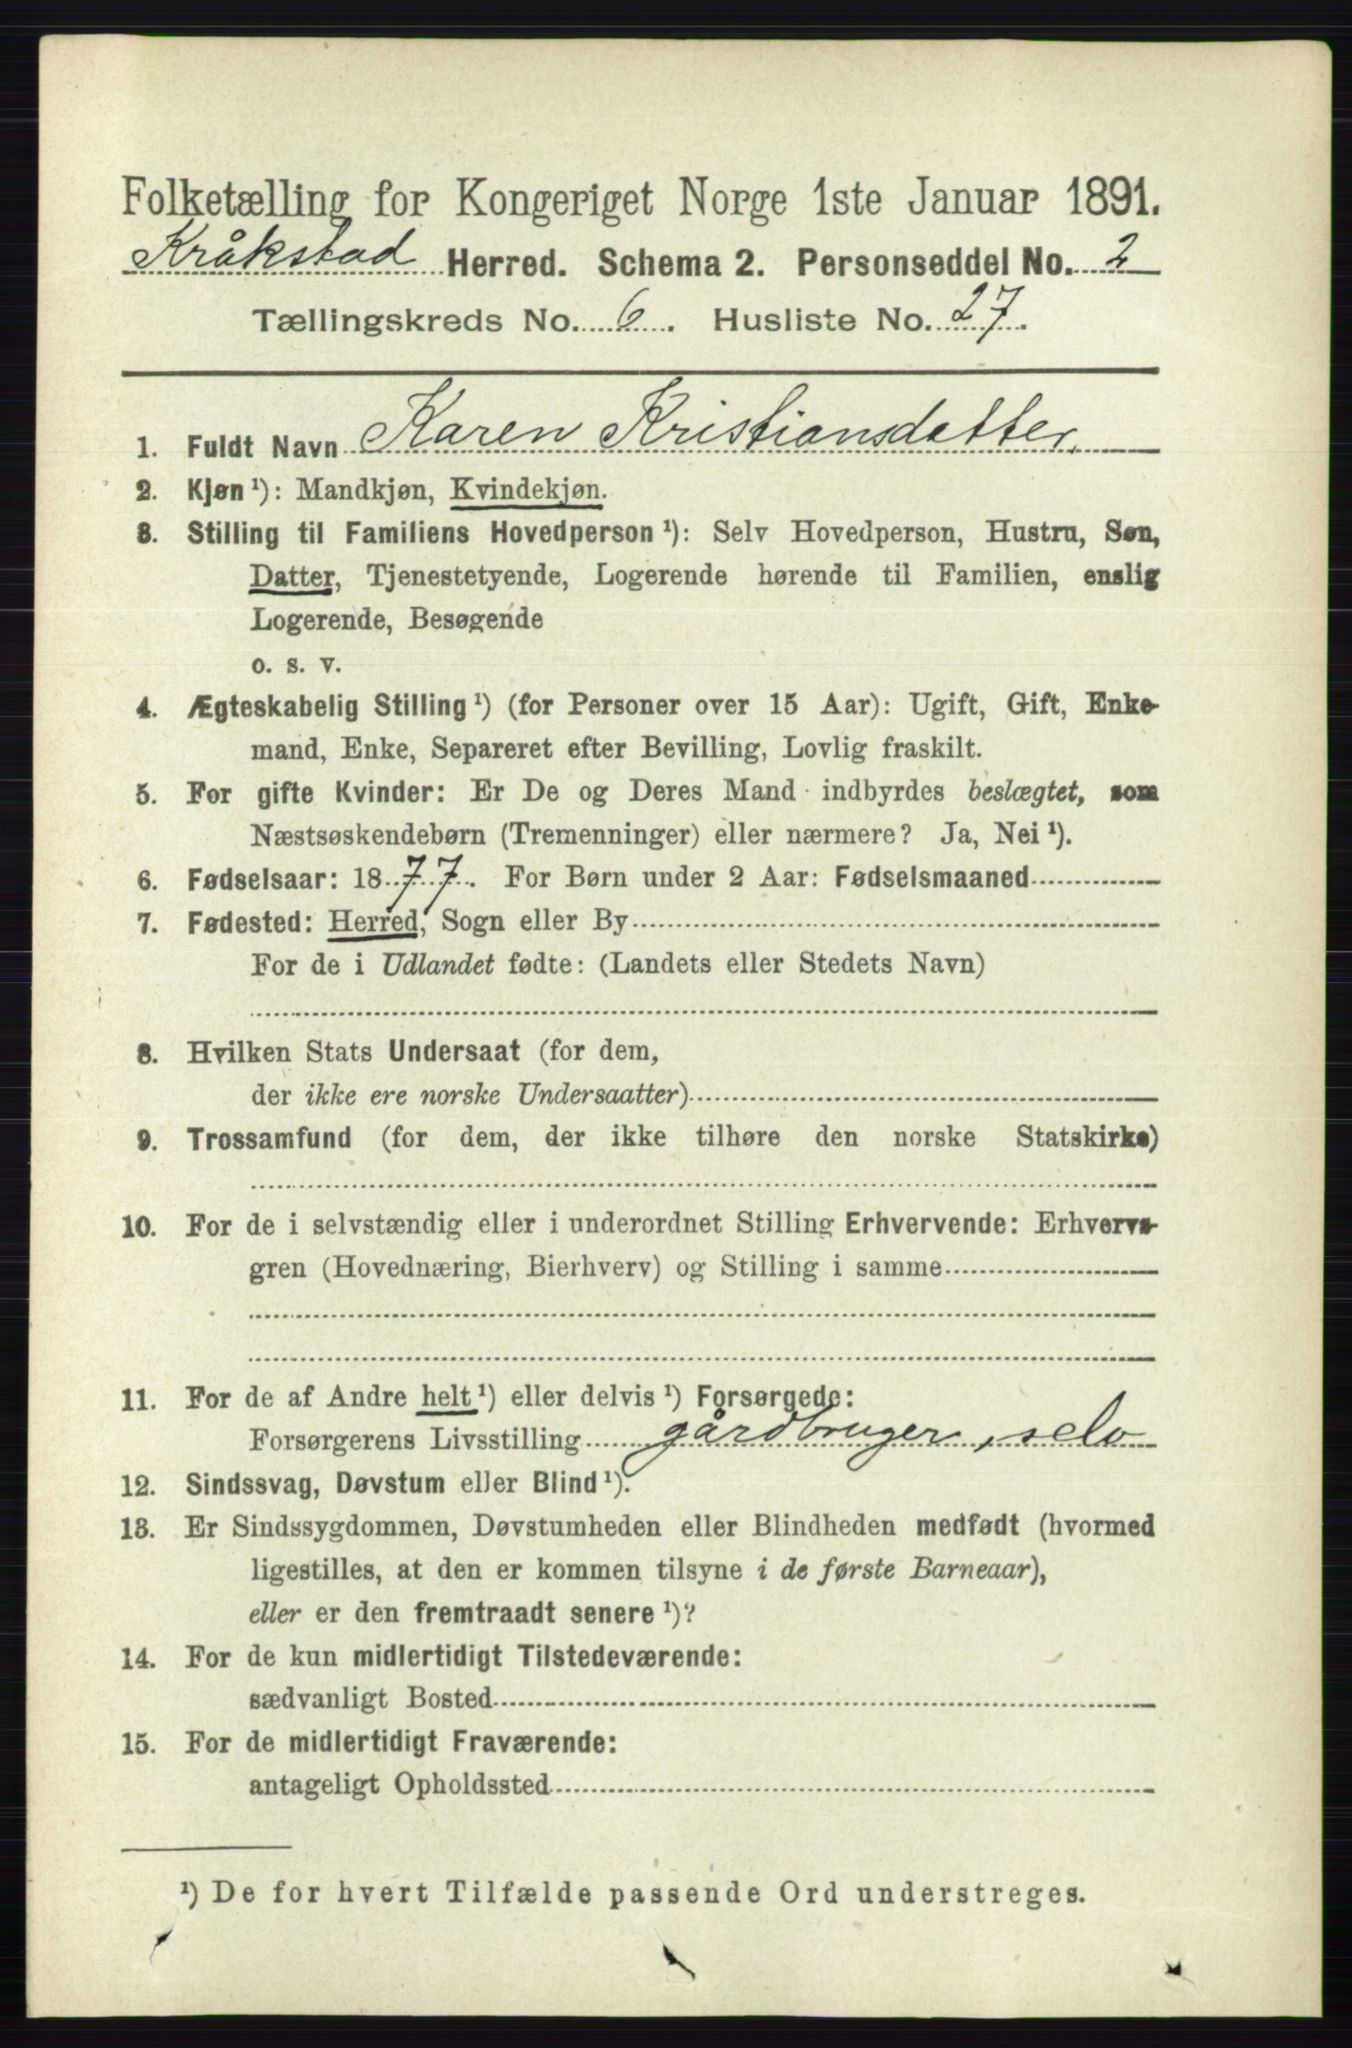 Folketælling for Kongeriget Norge 1ste Januar 1891.
Kråkstad Herred. Schema 2. Personseddel No. 2
Tællingskreds No. 6. Husliste No. 27.
1. Fuldt Navn Karen Kristiansdatter,
2. Kjøn ¹): Mandkjøn, Kvindekjøn.
3. Stilling til Familiens Hovedperson ¹): Selv Hovedperson, Hustru, Søn,
Datter, Tjenestetyende, Logerende hørende til Familien, enslig
Logerende, Besøgende
o. s. v.
4. Ægteskabelig Stilling ¹) (for Personer over 15 Aar): Ugift, Gift, Enke-
mand, Enke, Separeret efter Bevilling, Lovlig fraskilt.
5. For gifte Kvinder: Er De og Deres Mand indbyrdes beslægtet, som
Næstsøskendebørn (Tremenninger) eller nærmere? Ja, Nei ¹).
6. Fødselsaar: 1877. For Børn under 2 Aar: Fødselsmaaned
7. Fødested: Herred, Sogn eller By
For de i Udlandet fødte: (Landets eller Stedets Navn)
8. Hvilken Stats Undersaat (for dem,
der ikke ere norske Undersaatter)
9. Trossamfund (for dem, der ikke tilhøre den norske Statskirke)
10. For de i selvstændig eller i underordnet Stilling Erhvervende: Erhvervs-
gren (Hovednæring, Bierhverv) og Stilling i samme
11. For de af Andre helt ¹) eller delvis ¹) Forsørgede:
Forsørgerens Livsstilling gårdbruger, selv
12. Sindssvag, Døvstum eller Blind ¹).
13. Er Sindssygdommen, Døvstumheden eller Blindheden medfødt (hvormed
ligestilles, at den er kommen tilsyne i de første Barneaar),
eller er den fremtraadt senere ¹)?
14. For de kun midlertidigt Tilstedeværende:
sædvanligt Bosted
15. For de midlertidigt Fraværende:
antageligt Opholdssted
¹) De for hvert Tilfælde passende Ord understreges.